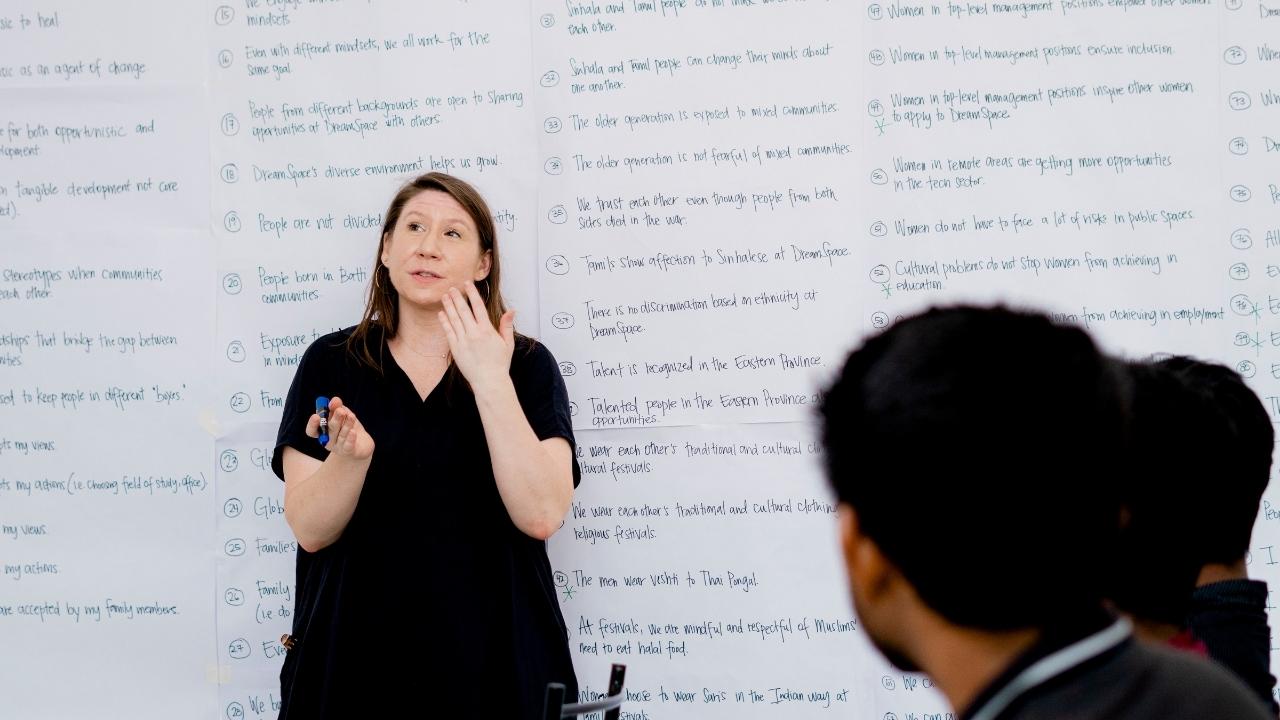 sic to heal
sic as an agent of change
e for both opportunistic and
lopment.
n tangible development not care
stereotypes when communities
each other.
dships that bridge the gap between
sed to keep people in different "boxes."
pts my views.
pts my actions (i.e. choosing field of study, office).
my views.
my actions.
are accepted by my family members.
15
mindsets.
16 Even with different mindsets, we all work for the
same goal
17 People from different backgrounds are open to sharing
opportunities at DreamSpace with others.
18 DreamSpace's diverse environment helps us grow.
19 People are not divided
20 People born in Batti
communities.
21 Exposure to
in minds
22 From
23 Gl
24 Glob
25 Families
26 Family
(i.e. do
27 Eve
28 We b
31 Sinhala and Tamil people do not think
each other.
32 Sinhala and Tamil people can change their minds about
one another.
33 The older generation is exposed to mixed communities.
The older generation is not fearful of mixed communities.
35 We trust each other even though people from both
sides died in the war.
36 Tamils show affection to Sinhalese at DreamSpace.
37 There is no discrimination based on ethnicity at
DreamSpace.
38 Talent is recognized in the Eastern Province.
Talented people in the Eastern Province
opportunities.
We wear each other's traditional and cultural clo
ltural festivals.
We wear each other's traditional and cultural clothing
religious festivals.
42 The men wear veshti to Thai Pongal.
At festivals, we are mindful and respectful of Muslims'
need to eat halal food.
hoose to wear Saris in the Indian way at
47 Women in top-level management positions empower other women.
48 Women in top-level management positions ensure inclusion.
49 Women in top-level management positions inspire other women
to apply to DreamSpace.
50 Women in remote areas are getting more opportunities
in the tech sector.
51 Women do not have to face a lot of risks in public spaces.
52 Cultural problems do not stop women from achieving in
education.
53 women from achieving in employment
72
73
74
75
76 All
77
78
79
80